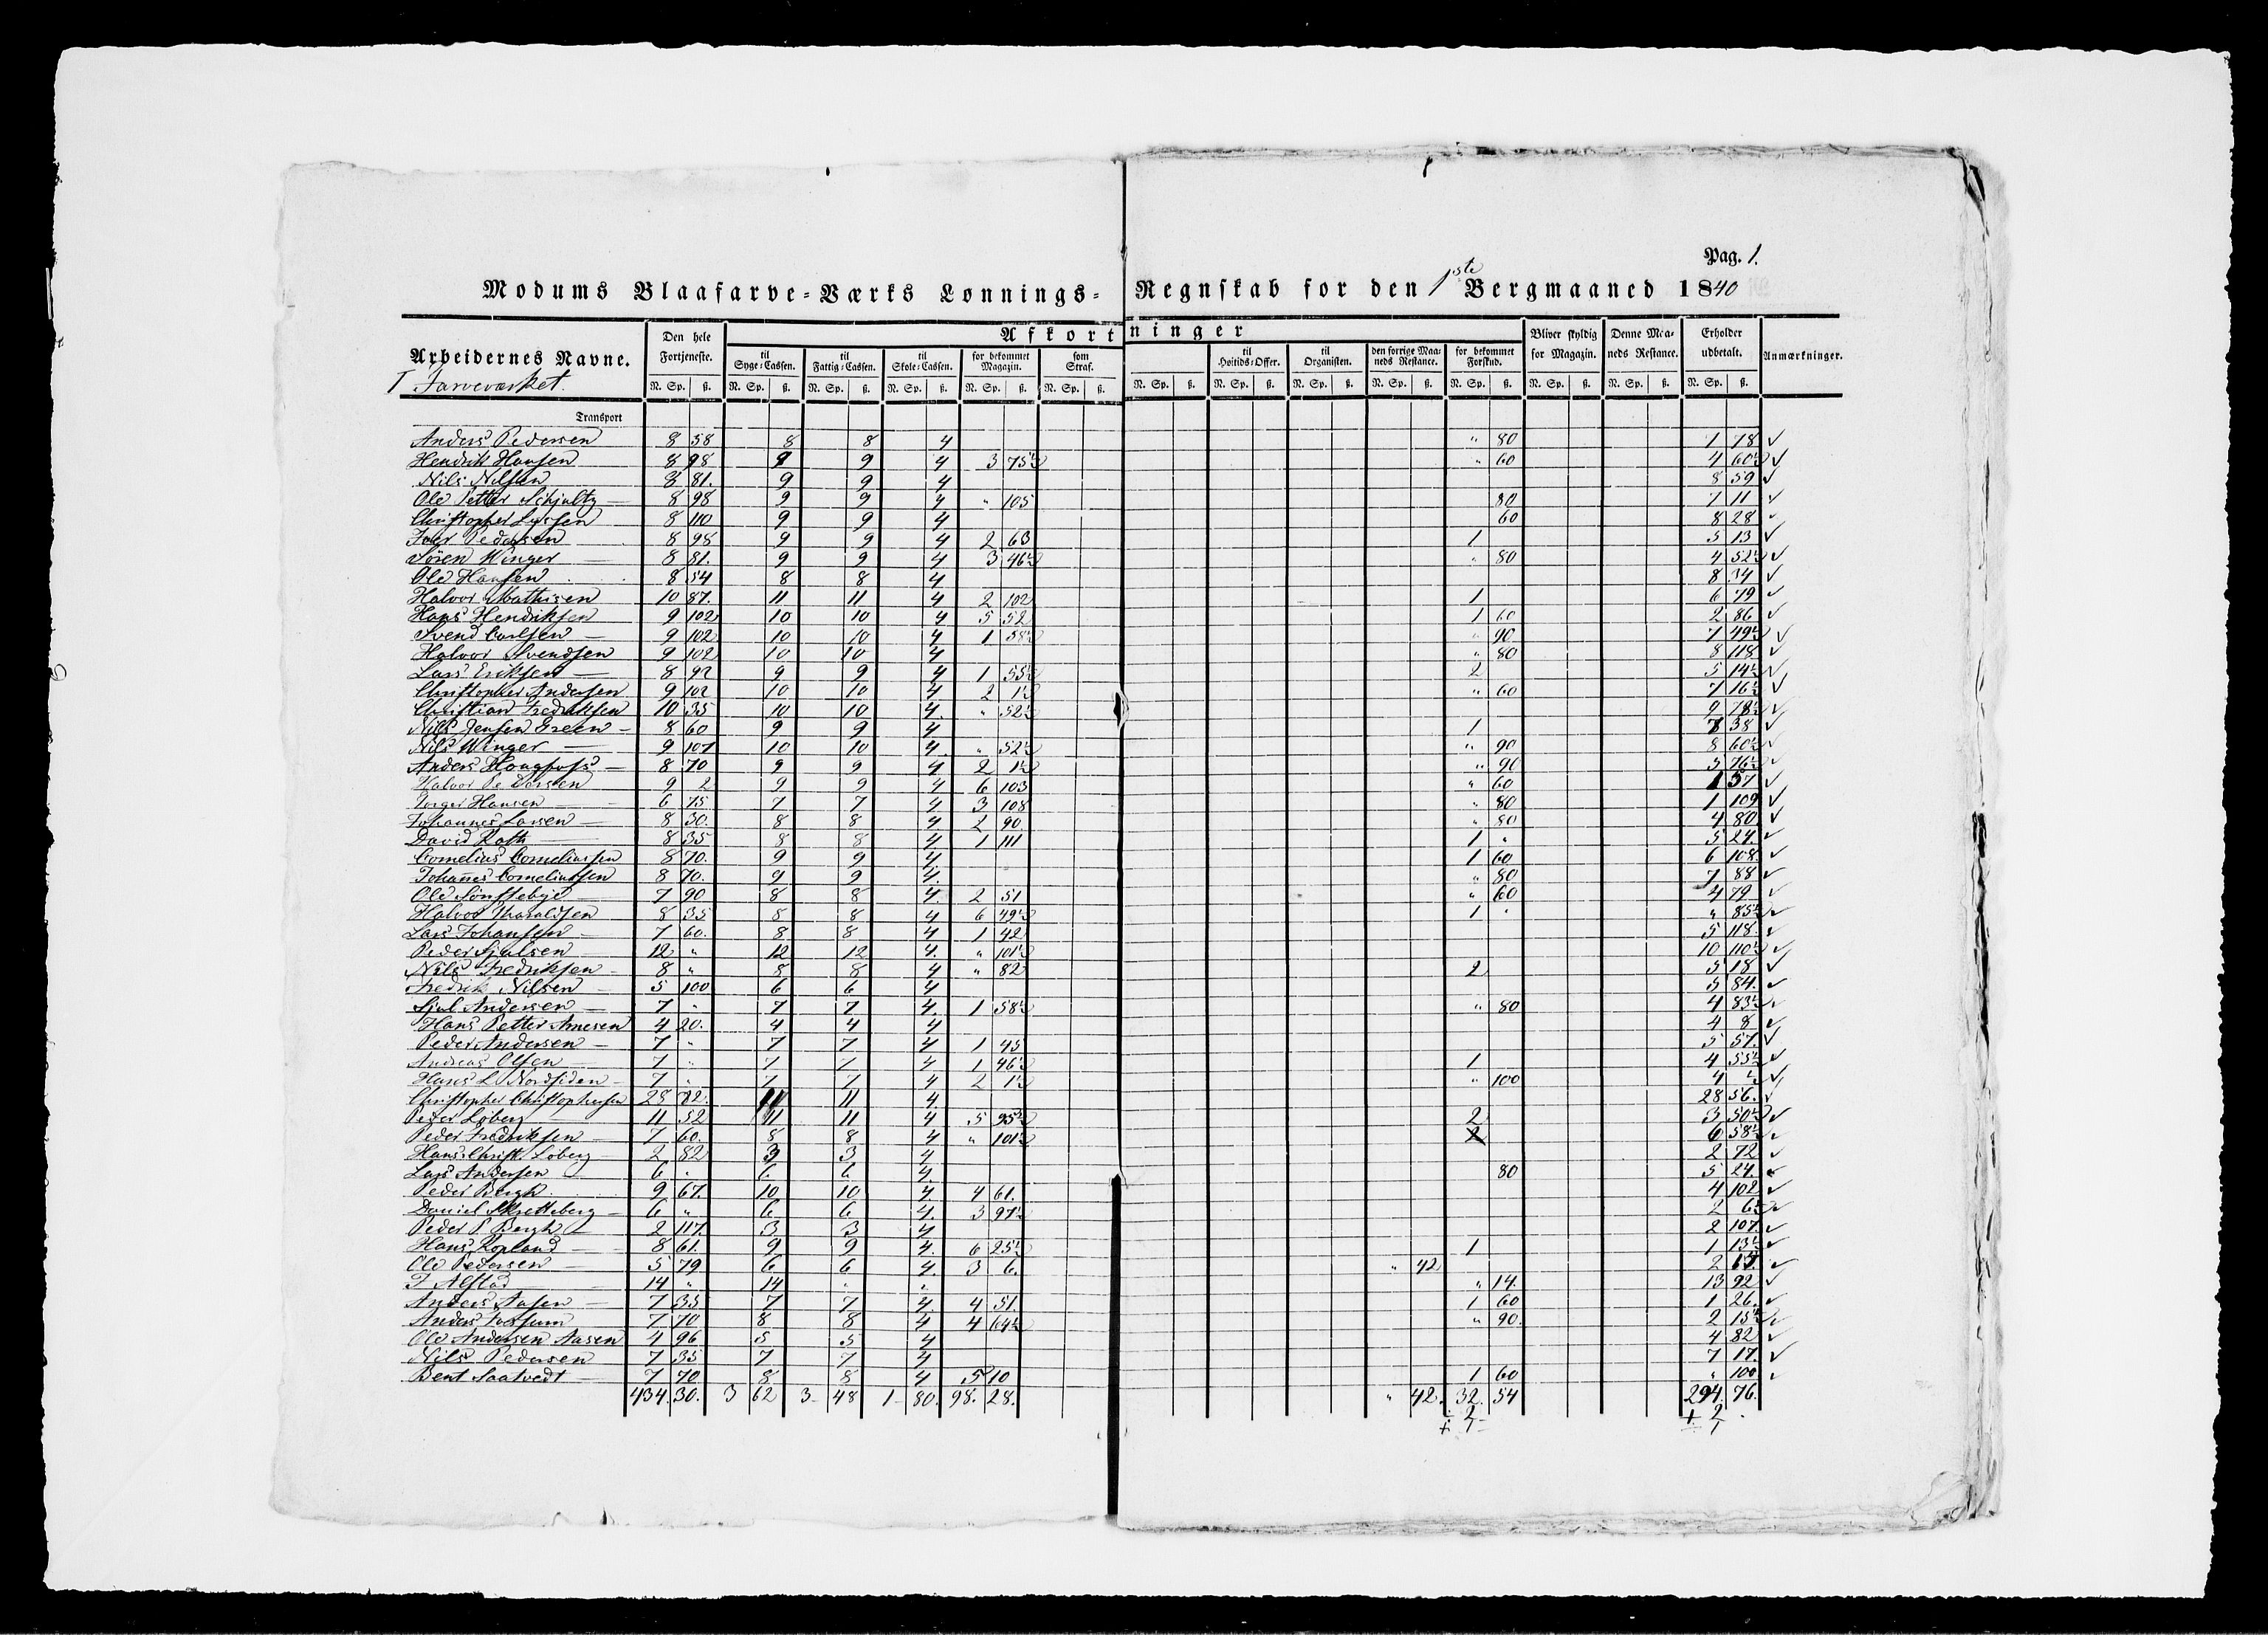 Pag. 1.
Modums Blaafarve=Værks Lønnings= Regnskab for den 1ste Bergmaaned 1840
Arbeidernes Navne. Den hele Fortjeneste. Afkortninger Bliver skyldig for Magazin. Denne Maaneds Restance. Erholder udbetalt. Anmærkninger.
til Syge=Cassen. til Fattig=Cassen. til Skole=Cassen. for bekommet Magazin. som Straf. til Høitids=Offer. til Organisten. den forrige Maaneds Restance. for bekommet Forskud.
I Farveværket.
N. Sp. ß. N. Sp. ß. N. Sp. ß. N. Sp. ß. N. Sp. ß. N. Sp. ß. N. Sp. ß. N. Sp. ß. N. Sp. ß. N. Sp. ß. N. Sp. ß. N. Sp. ß. N. Sp. ß. N. Sp. ß.
Transport
Anders Pedersen 8 58 8 8 4 " 80 7 78 ✓
Hendrik Hansen 8 98 9 9 4 3 75½ " 60 4 60½ ✓
Nils Nilsen 8 81. 9 9 4 8 59 ✓
Ole Petter Schjultz 8 98 9 9 4 " 105 80 7 11 ✓
Christopher 8 110 9 9 4 60 8 28 ✓
Iver Pedersen 8 98 9 9 4 2 63 1 5 13 ✓
Sören Winger 8 81. 9 9 4 3 46½ " 80 4 52½ ✓
Ole Hansen 8 54 8 8 4 8 34 ✓
Halvor Mathisen 10 87. 11 11 4 2 102 1 6 79 ✓
Hans Hendriksen 9 102 10 10 4 5 52 1 60 2 86 ✓
Svend Carlsen 9 102 10 10 4 1 58½ " 90 7 49½ ✓
Halvor Svendsen 9 102 10 10 4 " 80 8 118 ✓
Lars Eriksen 8 92 9 9 4 1 55½ 2 5 14½ ✓
Christopher Andersen 9 102 10 10 4 2 1½ " 60 7 16½ ✓
Christian Fredriksen 10 35 10 10 4 " 52½ 9 78½ ✓
Nils Jensen Green 8 60 9 9 4 1 7 38 ✓
Nils Winger 9 107 10 10 4 " 52½ " 90 8 60½ ✓
Anders Hougfoss 8 70 9 9 4 2 1½ " 90 5 76½ ✓
Halvor Pedersen 9 2 9 9 4 6 103 " 60 1 57 ✓
Torger Hansen 6 75 7 7 4 3 108 " 80 1 109 ✓
Johannes Larsen 8 30. 8 8 4 2 90 " 80 4 80 ✓
David Roth 8 35 8 8 4 1 111 1 " 5 24. ✓
Cornelius Corneliussen 8 70. 9 9 4 1 60 6 108. ✓
Johañes Corneliussen 8 70. 9 9 4. " 80 7 88 ✓
Ole Sönstebye 7 90 8 8 4 2 51 " 60 4 79 ✓
Halvor Haraldsen 8 35 8 8 4 6 49½ 1 " " 85½ ✓
Lars Johansen 7 60. 8 8 4 1 42 5 118. ✓
Peder Sjulsen 12 " 12 12 4. " 101½ 10 110½ ✓
Nils Fredriksen 8 " 8 8 4 " 82 2 5 18 ✓
Fredrik Nilsen 5 100 6 6 4 5 84. ✓
Sjul Andersen 7 " 7 7 4. 1 58½ " 80 4 83½ ✓
Hans Petter Arnesen 4 20. 4 4 4 4 8 ✓
Peder Andersen 7 " 7 7 4 1 45 5 57. ✓
Andreas Olsen 7 " 7 7 4 1 46½ 1 4 55½ ✓
Hans L Nordsiden 7 " 7 7 4 2 1½ " 100 4 ½ ✓
Christopher Christophersen 28 82. 11 11 4 28 56. ✓
Peder Löberg 11 52 11 11 4 5 95½ 2 3 50½ ✓
Peder Fredriksen 7 60. 8 8 4 " 101½ 2 6 58½ ✓
Hans Christ. Löberg 2 82 3 3 4 2 72 ✓
Lars Andersen 6 " 6. 6. 4. 80 5 24. ✓
Peder Bergh 9 67. 10 10 4. 4 61. 4 102 ✓
Daniel Skretteberg 6 " 6 6 4. 3 97½ 2 6½ ✓
Peder P Bergh 2 117. 3 3 4 2 107. ✓
Hans Kopland 8 61. 9 9 4. 6 25½ 1 1 13½ ✓
Ole Pedersen 5 79 6 6 4. 3 6. " 42 2 17. ✓
J Alstad 14 " 14 " " " 14. 13 92 ✓
Anders Aasen 7 35 7 7 4. 4 51. 1 60 1 26. ✓
Anders Fossum 7 70 8 8 4 4 64½ " 90. 2 15½ ✓
Ole Andersen Aasen 4 96 5 5 4 4 82 ✓
Nils Pedersen 7 35 7 7 4 7 17. ✓
Bent Saatvedt 7 70 8 8 4 5 10 1 60 " 100 ✓
434. 30. 3 62 3 48 1 80. 98. 28. " 42. 32. 54 294. 76.